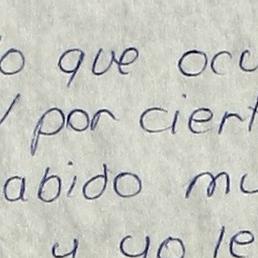 o que ocu
y por ciert
abido mu
y yo le